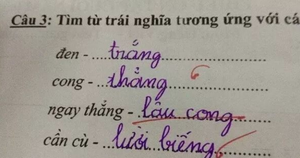 Câu 3: Tìm từ trái nghĩa tương ứng với cá
đen - ...trắng...
cong - ...thẳng...
ngay thẳng - ...lâu cong...
cần cù - ...lười biếng...